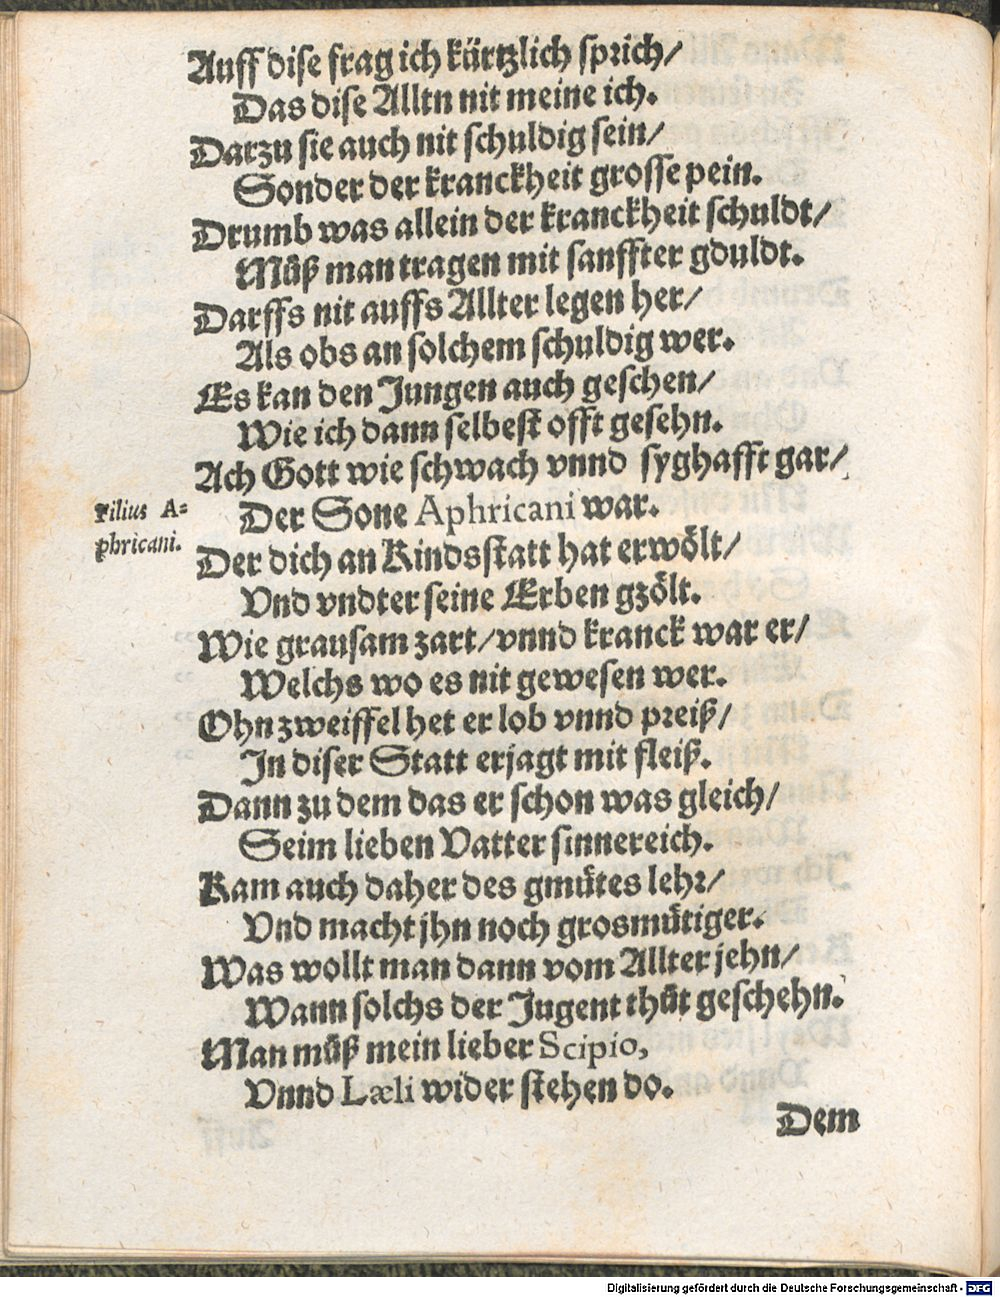 Auff dise frag ich kürtzlich sprich/
Das dise Alltn nit meine ich.
Darzu sie auch nit schuldig sein/
Sonder der kranckheit grosse pein.
Drumb was allein der kranckheit schuldt/
Můß man tragen mit sanffter gduldt.
Darffs nit auffs Allter legen her/
Als obs an solchem schuldig wer.
Es kan den Jungen auch geschen/
Wie ich dann selbest offt gesehn.
Ach Gott wie schwach vnnd syghafft gar/
Der Sone Aphricani war.
Filius A-
phricani.
Der dich an Kindsstatt hat erwölt/
Vnd vndter seine Erben gzölt.
Wie grausam zart/vnnd kranck war er/
Welchs wo es nit gewesen wer.
Ohn zweiffel het er lob vnnd preiß/
In diser Statt erjagt mit fleiß.
Dann zu dem das er schon was gleich/
Seim lieben Vatter sinnereich.
Kam auch daher des gmütes lehr/
Vnd macht jhn noch grosmütiger.
Was wollt man dann vom Allter jehn/
Wann solchs der Jugent thůt geschehn.
Man můß mein lieber Scipio,
Vnnd Læli wider stehen do.
Dem
Digitalisierung gefördert durch die Deutsche Forschungsgemeinschaft - DFG